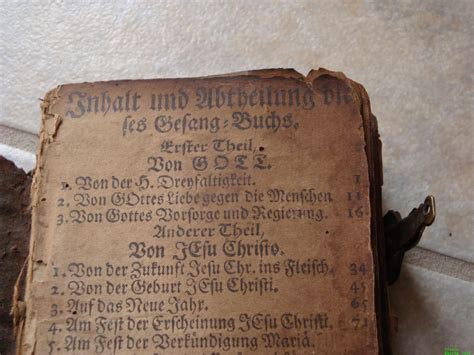 Inhalt und Abtheilung die
ses Gesang-Buchs.
Erster Theil,
Von GOTT.
1. Von der H. Dreyfaltigkeit. 1
2. Von GOttes Liebe gegen die Menschen 11
3. Von Gottes Vorsorge und Regierung. 16
Anderer Theil,
Von JEsu Christo.
1. Von der Zukunft Jesu Chr. ins Fleisch, 34
2. Von der Geburt JEsu Christi. 45
3. Auf das Neue Jahr. 65
4. Am Fest der Erscheinung JEsu Christi. 71
5. Am Fest der Verkündigung Mariä.